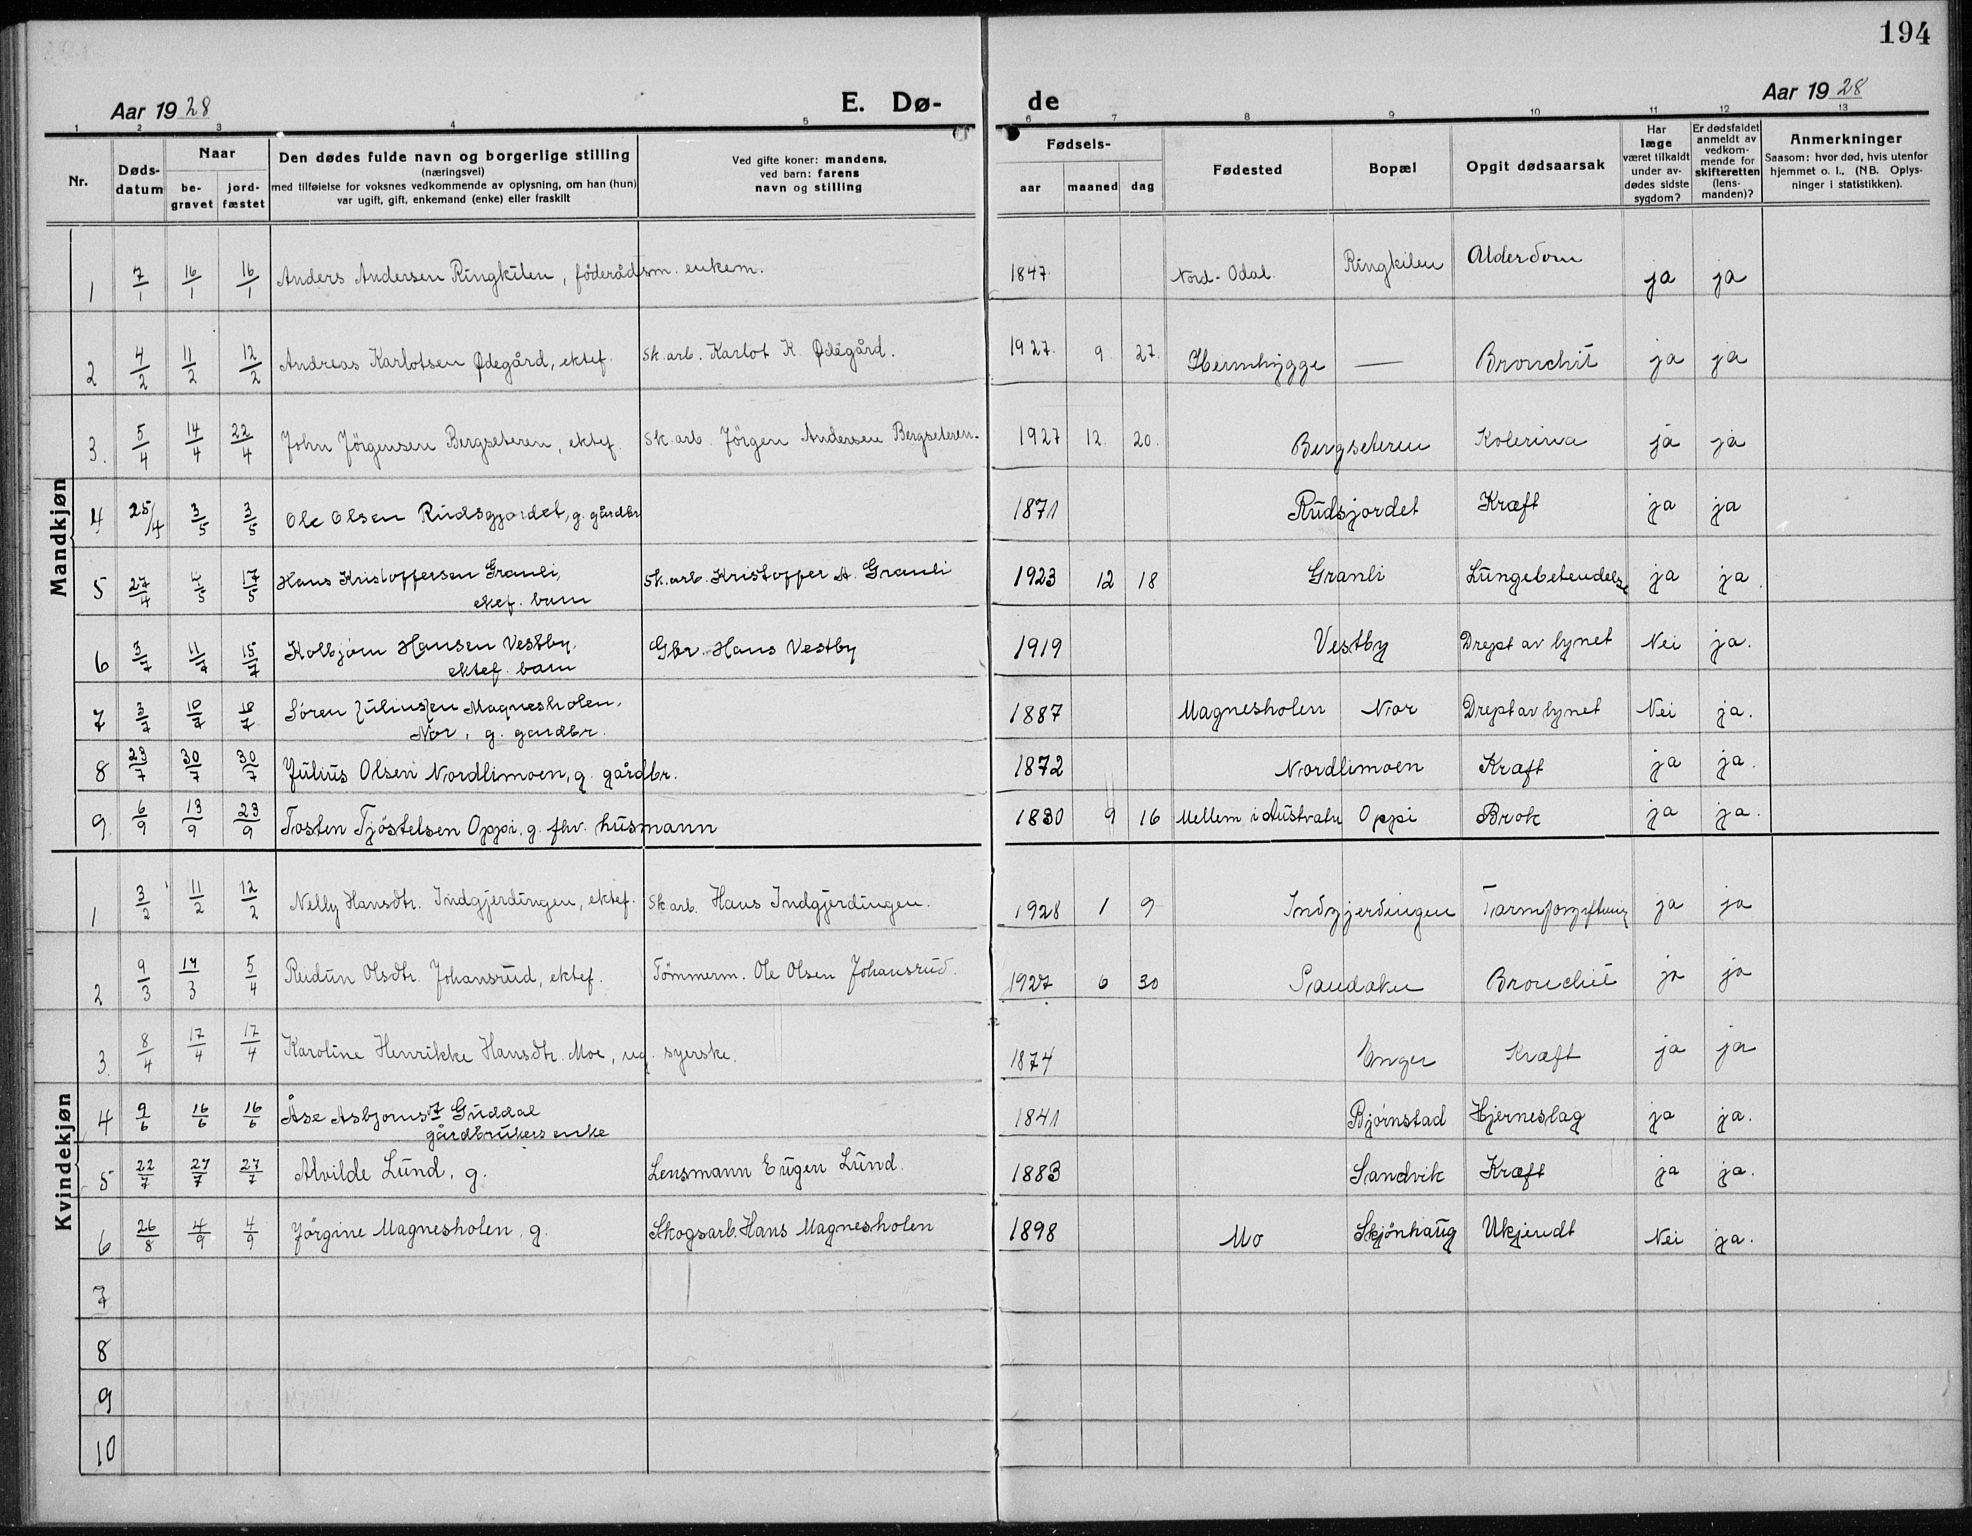 194
Aar 1928
E. Dø-
de
Aar 1928
1 2 3 4 5 6 7 8 9 10 11 12 13
Nr.
Døds-
datum
Naar
be-
gravet
jord-
fæstet
Den dødes fulde navn og borgerlige stilling
(næringsvei)
med tilføielse for voksnes vedkommende av oplysning, om han (hun)
var ugift, gift, enkemand (enke) eller fraskilt
Ved gifte koner: mandens,
ved barn: farens
navn og stilling
Fødsels-
aar maaned dag
Fødested
Bopæl
Opgit dødsaarsak
Har
læge
været tilkaldt
under av-
dødes sidste
sygdom?
Er dødsfaldet
anmeldt av
vedkom-
mende for
skifteretten
(lens-
manden)?
Anmerkninger
Saasom: hvor død, hvis utenfor
hjemmet o. l., (NB. Oplys-
ninger i statistikken).
Mandkjøn
1 7/1 16/1 16/1 Anders Andersen Ringkilen, föderådsm. enkem. 1847 Nord-Odal Ringkilen Alderdom ja ja
2 4/2 11/2 12/2 Andreas Karlotsen Ødegård, ektef. Sk.arb. Karlot K. Ødegård. 1927. 9 27. Heimhygge — Bronchit ja ja
3. 5/4 14/4 22/4 John Jörgensen Bergseteren, ektef. Sk.arb. Jörgen Andersen Bergseteren. 1927 12. 20. Bergseteren Kolerina ja ja
4 25/4 3/5 3/5 Ole Olsen Rudsgjordet, g. gårdbr 1871 Rudsjordet Kræft ja ja
5 27/4 4/5 17/5 Hans Kristoffersen Granli, Sk.arb. Kristoffer A. Granli 1923 12 18 Granli Lungebetendelse ja ja.
ektef. barn
6 3/7 11/7 15/7 Kolbjørn Hansen Vestby, Gbr. Hans Vestby 1919 Vestby Drept av lynet Nei ja.
ektef. barn
7 3/7 10/7 /7 Søren Julinssen Magnesholen, 1887 Magnesholen Nor Drept av lynet Nei ja.
Nor, g. gardbr.
8 23/7 30/7 30/7 Julius Olsen Nordlimoen, g. gårdbr. 1872 Nordlimoen Kraft ja ja.
9. 6/9 13/9 23/9 Tosten Tjøstelsen Oppi, g. fhv. husmann 1830 9 16 Mellem i Austvatn Oppi Brok ja ja.
Kvindekjøn
1 3/2 11/2 12/2 Nelly Hansdtr. Indgjerdingen, ektef. Sk arb. Hans Indgjerdingen. 1928 1 9 Indgjerdingen Tarmforgiftning ja ja
2 9/3 14/3 5/4 Reidun Olsdtr. Johansrud, ektef. Tömmerm. Ole Olsen Johansrud. 1927 6 30 Sandaker Bronchit ja ja
3. 8/4 17/4 17/4 Karoline Henrikke Hansdtr. Moe, ug. syerske. 1874 Enger Kræft ja ja
4 9/6 16/6 16/6 Åse Asbjornsd Guddal 1841 Bjørnstad Hjerneslag ja ja.
gårdbrukers enke
5 22/7 27/7 27/7 Alvilde Lund, g. Lensmann Eugen Lund. 1883 Sandvik Kræft ja ja.
6 26/8 4/9 4/9 Jørgine Magnesholen, g. Skogsarb. Hans Magnesholen 1898 Mo Skjønhaug Ukjendt Nei ja.
7
8
9
10